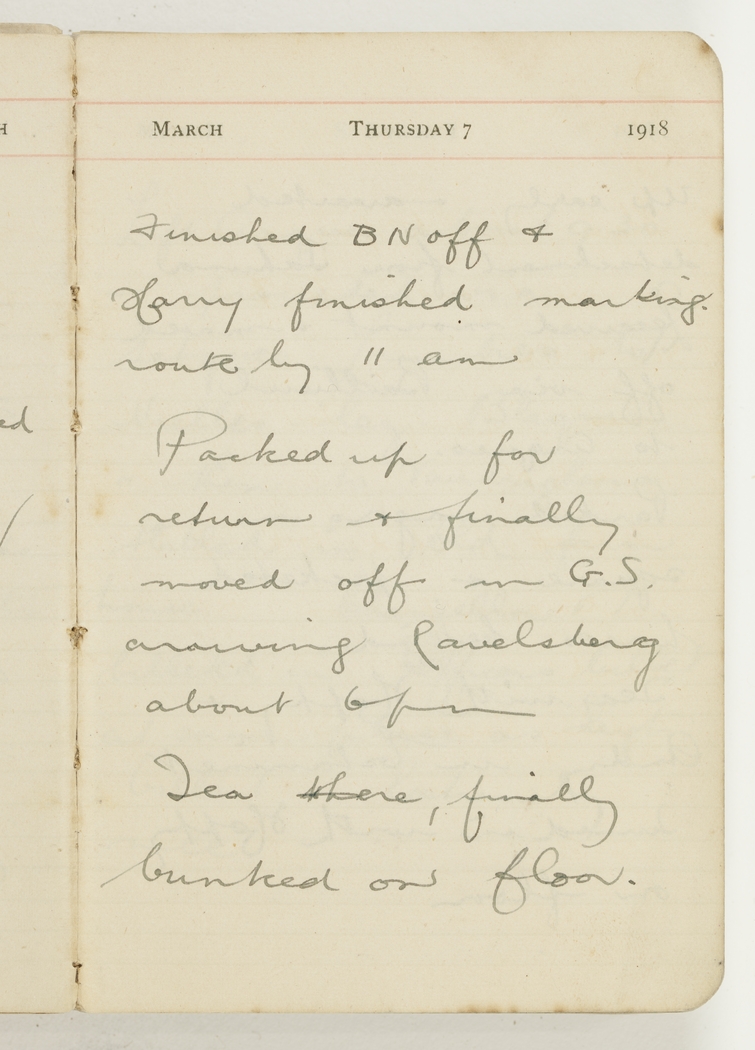 H
MARCH THURSDAY 7 1918
ed
Finished BN off &
Harry finished marking.
route by 11 am
Packed up for
return & finally
moved off in G.S.
arouving Ravelsberg
about 6 pm
Tea there, finally
bunked on floor.